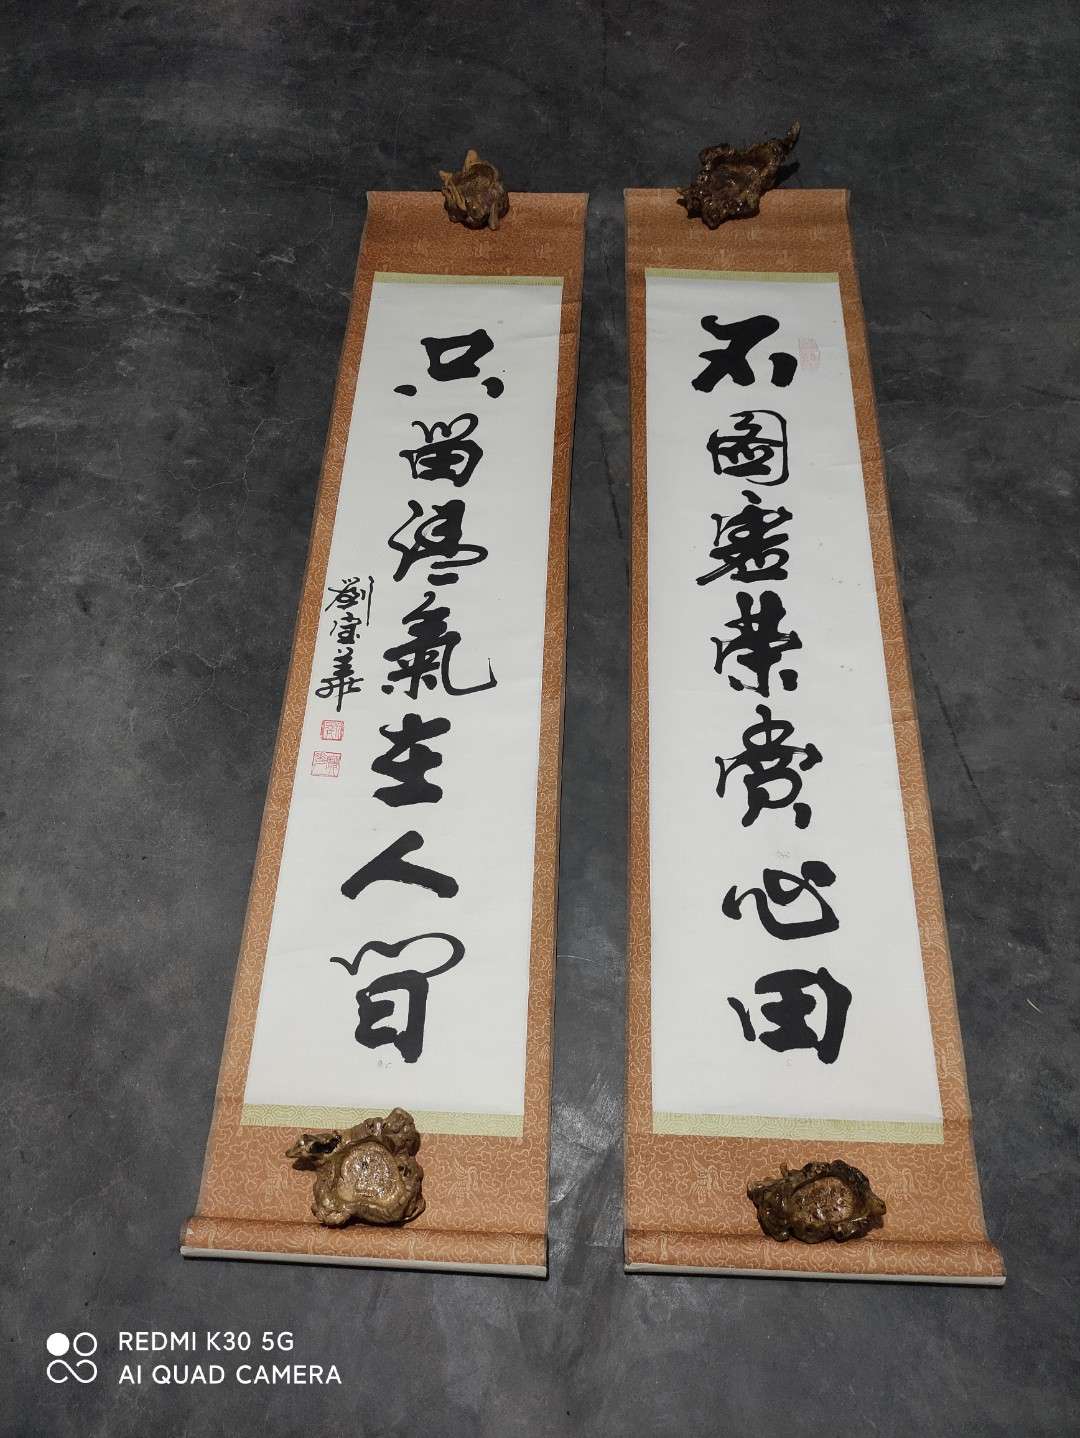 不圖虛榮賞心田
只留清氣在人間
劉宝華
REDMI K30 5G
AI QUAD CAMERA